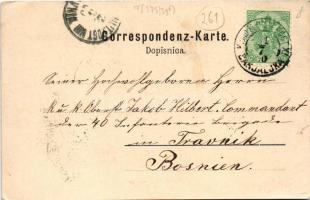 (261)
Correspondenz-Karte.
Dopisnica.
Seiner Hochwohlgeboren Herrn
k. u. k. Oberst Jakob Hilbert, Commandant
der 40 Infanterie Brigade
in Travnik
Bosnien.